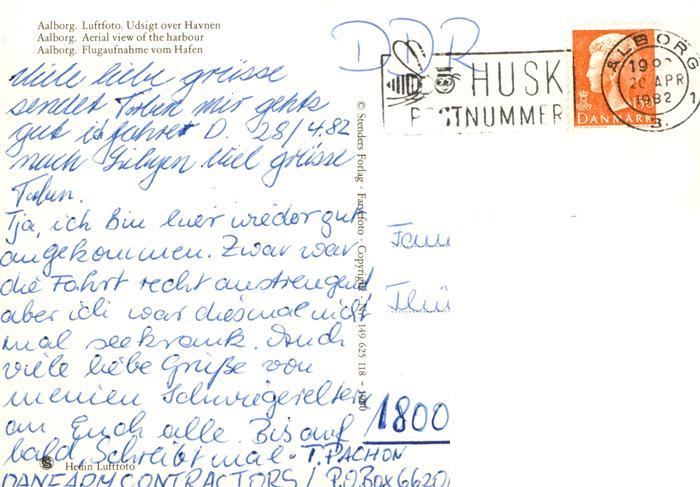 Aalborg. Luftfoto. Udsigt over Havnen
Aalborg. Aerial view of the harbour
Aalborg. Flugaufnahme vom Hafen
DDR
HUSK
POSTNUMMER
AALBORG
20 APR
1982
DANMARK
Viele liebe grüsse
sendet Torben mir gehts
gut ih fahret D. 28/4.82
nach Libyen Viel grüsse
Torben.
Tja, ich bin hier wieder gut
angekommen. Zwar war
die Fahrt recht anstrengend
aber ich war diesmal nicht
mal seekrank. Auch
viele liebe Grüße von
meinen Schwiegereltern
an Euch alle. Bis auf
bald Schreibt mal - T. PACHON
DANFARM CONTRACTORS / P.O.Box 6620
© Stenders Forlag - Farvefoto - Copyright - Nr. 149 625 118 -
Fam
1800
Hedin Luftfoto